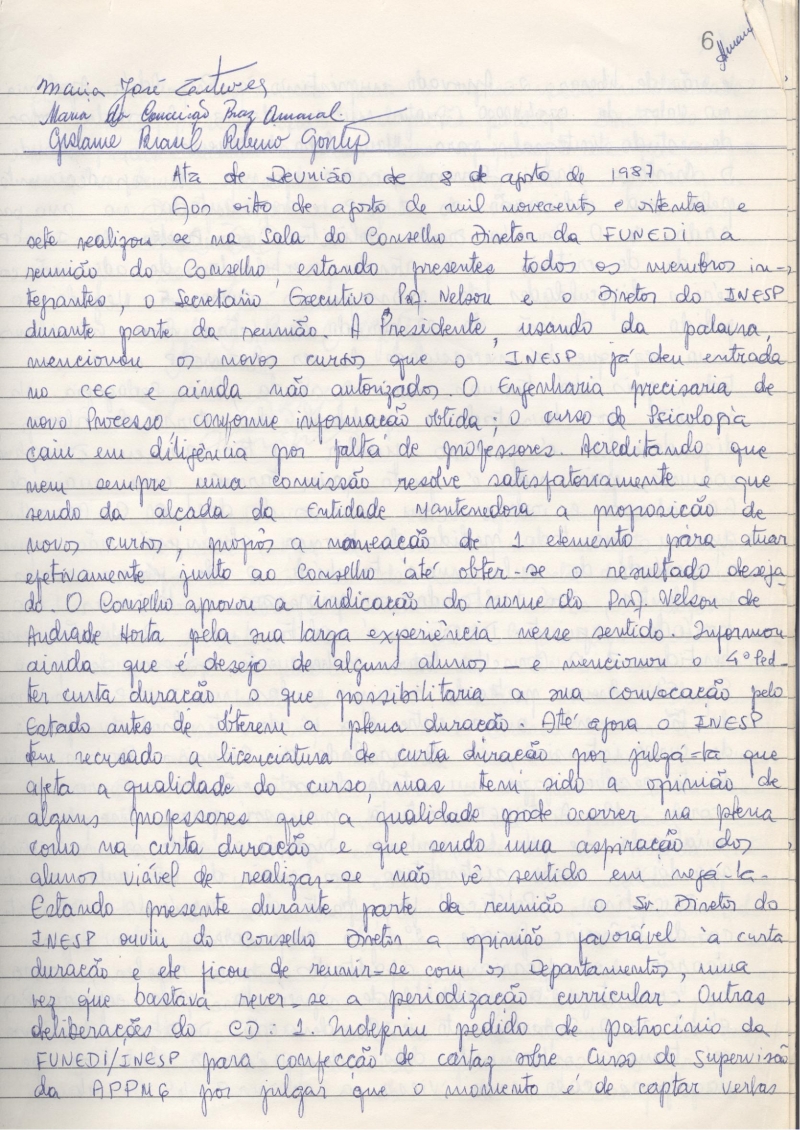 6
Maria José
Maria da Conceição Braz Amaral
Gislaine Ribeiro Gontijo
Ata de Reunião de 8 de agosto de 1987
Aos oito de agosto de mil novecentos e oitenta e
sete realizou-se na Sala do Conselho Diretor da FUNEDI a
reunião do Conselho, estando presentes todos os membros in-
tegrantes, o Secretário Executivo Prof. Nelson e o Diretor do INESP
durante parte da reunião. A Presidente, usando da palavra,
mencionou os novos cursos que o INESP já deu entrada
no CEE e ainda não autorizados. O Engenharia precisaria de
novo Processo conforme informação obtida; o curso de Psicologia
caiu em diligência por falta de professores. Acreditando que
nem sempre uma comissão resolve satisfatoriamente e que
sendo da alçada da Entidade Mantenedora a proposição de
novos cursos, propôs a nomeação de 1 elemento para atuar
efetivamente junto ao Conselho até obter-se o resultado deseja
do. O Conselho aprovou a indicação do nome do Prof. Nelson de
Andrade Horta pela sua larga experiência nesse sentido. Informou
ainda que é desejo de alguns alunos - e mencionou o 4º Ped -
ter curta duração o que possibilitaria a sua convocação pelo
Estado antes de obterem a plena duração. Até agora o INESP
tem recusado a licenciatura de curta duração por julgá-la que
afeta a qualidade do curso, mas tem sido a opinião de
alguns professores que a qualidade pode ocorrer na plena
como na curta duração e que sendo uma aspiração dos
alunos viável de realizar-se não vê sentido em negá-la.
Estando presente durante parte da reunião o Sr. Diretor do
INESP ouviu do Conselho Diretor a opinião favorável à curta
duração e ele ficou de reunir-se com os Departamentos, uma
vez que bastava rever-se a periodização curricular. Outras
deliberações do CD: 1. Indeferiu pedido de patrocínio da
FUNEDI/INESP para confecção de cartaz sobre Curso de Supervisão
da APPMG por julgar que o momento é de captar verbas